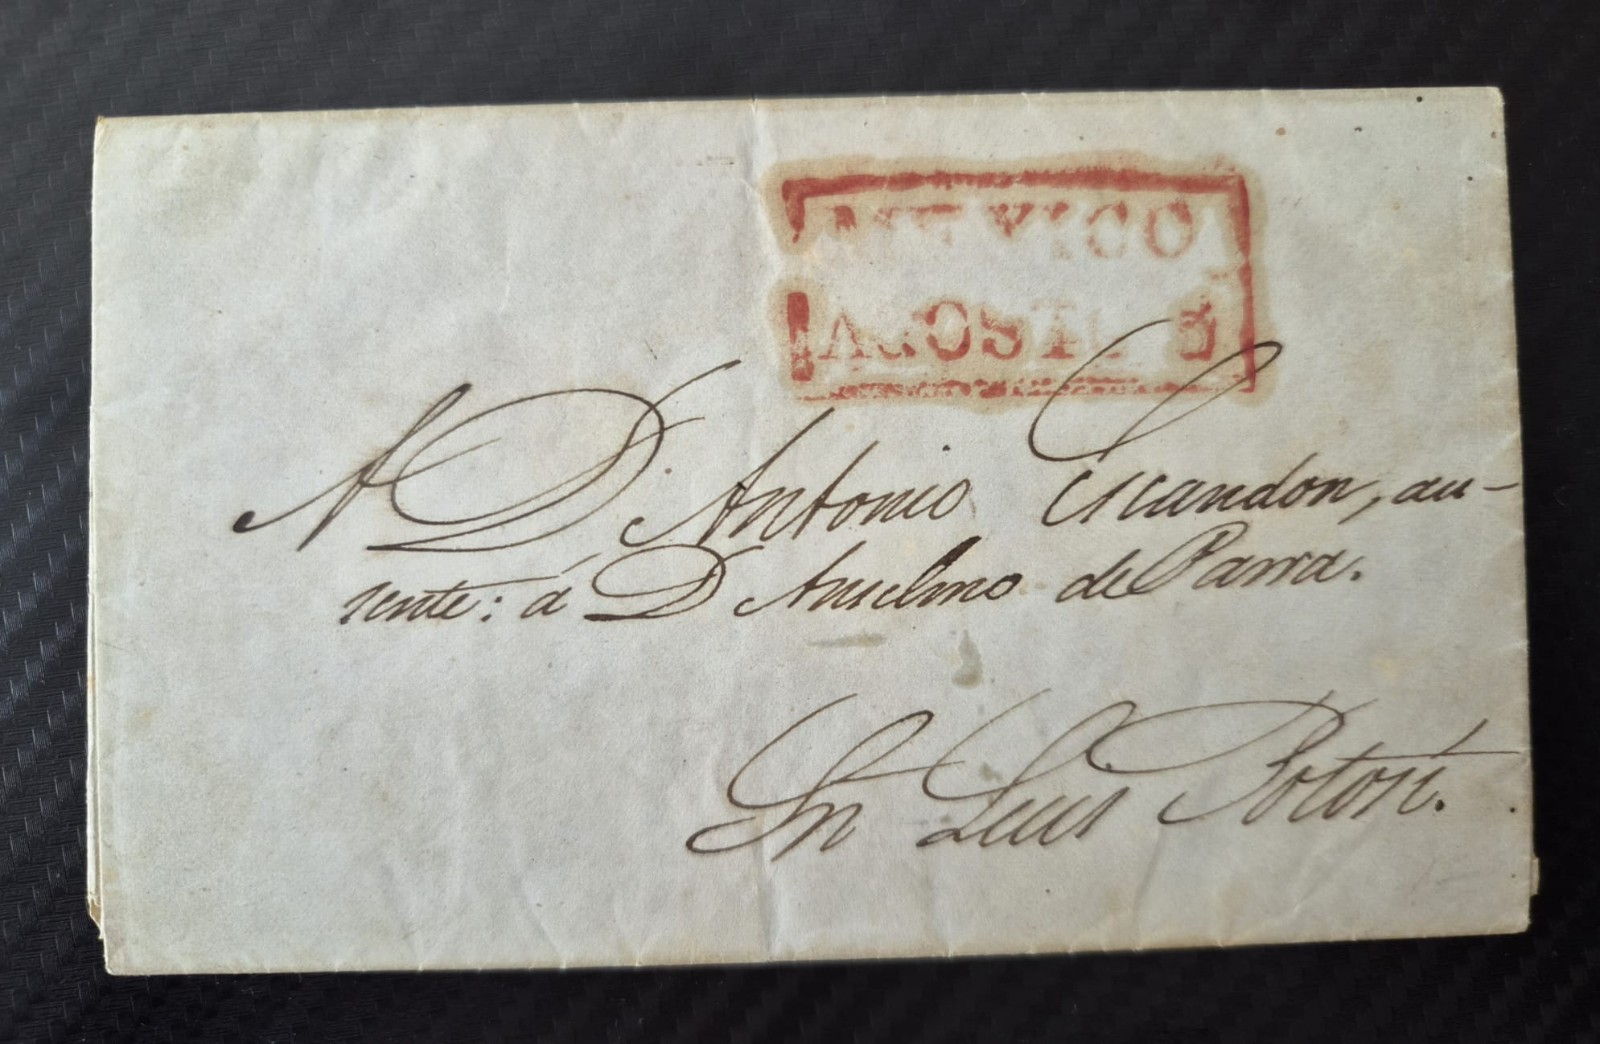 MEXICO
AGOSTO
A D. Antonio Escandon, au-
sente: á D. Anselmo de Parra.
Sn Luis Potosí.